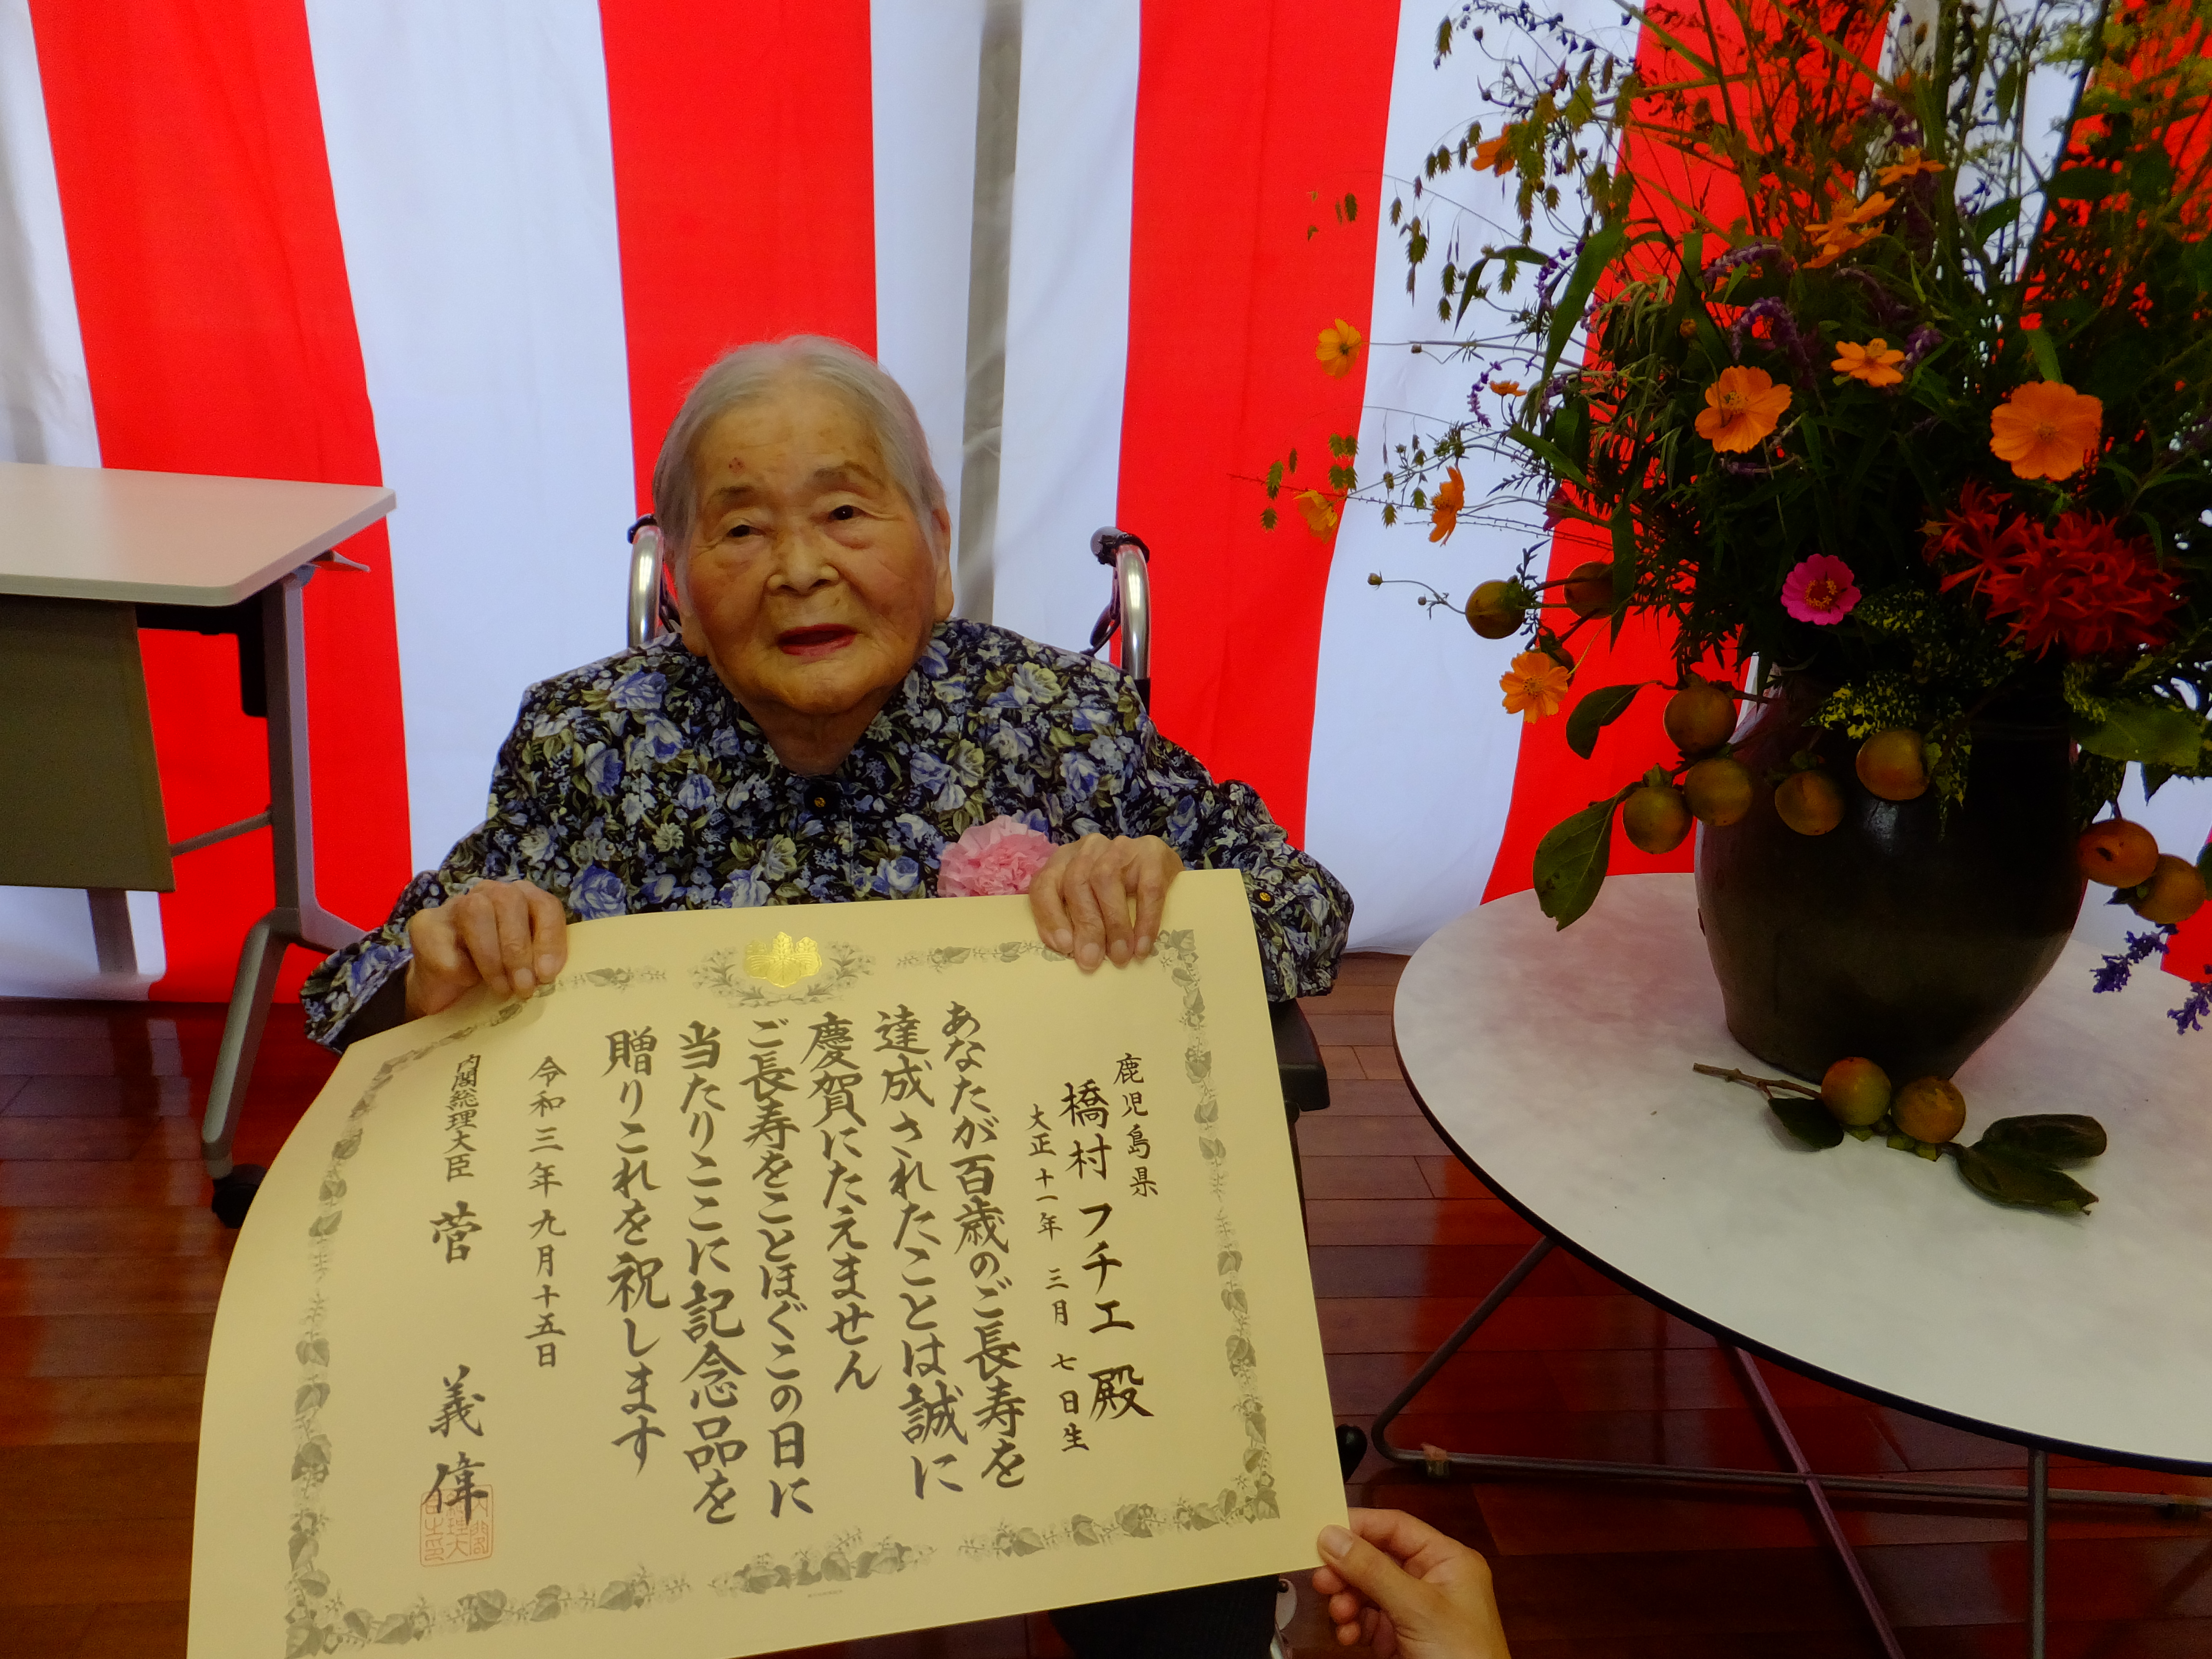 鹿児島県
橋村 フチエ 殿
大正十一年 三月 七日生
あなたが百歳のご長寿を
達成されたことは誠に
慶賀にたえません
ご長寿をことほぐこの日に
当たりここに記念品を
贈りこれを祝します
令和三年九月十五日
内閣総理大臣 菅 義偉